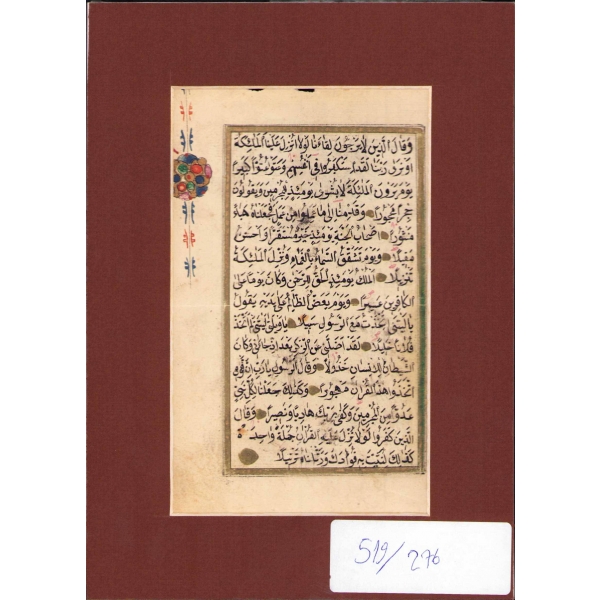 وَقَالَ الَّذِينَ لَا يَرْجُونَ لِقَاءَنَا لَوْلَا أُنْزِلَ عَلَيْنَا الْمَلٰئِكَةُ
اَوْ نَرٰى رَبَّنَا لَقَدِ اسْتَكْبَرُوا فِي اَنْفُسِهِمْ وَعَتَوْ عُتُوًّا كَبِيرًا
يَوْمَ يَرَوْنَ الْمَلٰئِكَةَ لَا بُشْرٰى يَوْمَئِذٍ لِلْمُجْرِمِينَ وَيَقُولُونَ
حِجْرًا مَحْجُورًا وَقَدِمْنَا اِلٰى مَا عَمِلُوا مِنْ عَمَلٍ فَجَعَلْنَاهُ هَبَاءً
مَنْثُورًا اَصْحَابُ الْجَنَّةِ يَوْمَئِذٍ خَيْرٌ مُسْتَقَرًّا وَاَحْسَنُ
مَقِيلًا وَيَوْمَ تَشَقَّقُ السَّمَاءُ بِالْغَمَامِ وَنُزِّلَ الْمَلٰئِكَةُ
تَنْزِيلًا اَلْمُلْكُ يَوْمَئِذٍ الْحَقُّ لِلرَّحْمٰنِ وَكَانَ يَوْمًا عَلَى
الْكَافِرِينَ عَسِيرًا وَيَوْمَ يَعَضُّ الظَّالِمُ عَلٰى يَدَيْهِ يَقُولُ
يَا لَيْتَنِي اتَّخَذْتُ مَعَ الرَّسُولِ سَبِيلًا يَا وَيْلَتٰى لَيْتَنِي لَمْ اَتَّخِذْ
فُلَانًا خَلِيلًا لَقَدْ اَضَلَّنِي عَنِ الذِّكْرِ بَعْدَ اِذْ جَاءَنِي وَكَانَ
الشَّيْطَانُ لِلْاِنْسَانِ خَذُولًا وَقَالَ الرَّسُولُ يَا رَبِّ اِنَّ قَوْمِي
اتَّخَذُوا هٰذَا الْقُرْاٰنَ مَهْجُورًا وَكَذٰلِكَ جَعَلْنَا لِكُلِّ نَبِيٍّ
عَدُوًّا مِنَ الْمُجْرِمِينَ وَكَفٰى بِرَبِّكَ هَادِيًا وَنَصِيرًا وَقَالَ
الَّذِينَ كَفَرُوا لَوْلَا نُزِّلَ عَلَيْهِ الْقُرْاٰنُ جُمْلَةً وَاحِدَةً
كَذٰلِكَ لِنُثَبِّتَ بِهِ فُؤَادَكَ وَرَتَّلْنَاهُ تَرْتِيلًا
519/276